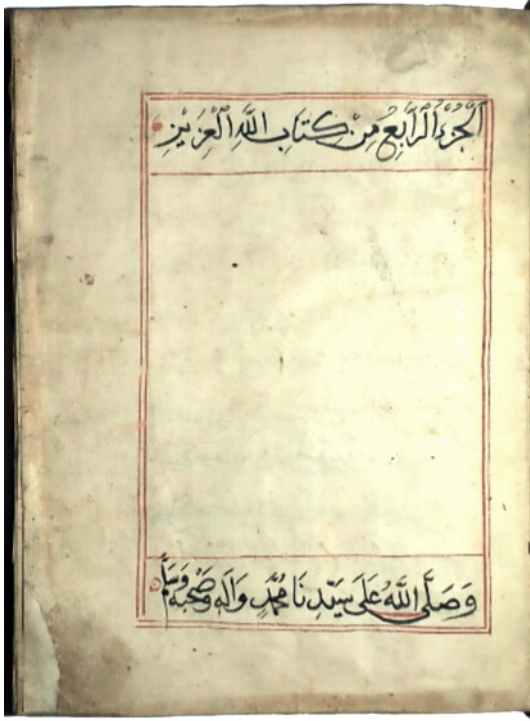 اَلْجُزْءُ الرَّابِعُ مِنْ كِتَابِ اللَّهِ الْعَزِيْزِ
وَصَلَّى اللَّهُ عَلَى سَيِّدِنَا مُحَمَّدٍ وَاٰلِهِ وَصَحْبِهِ وَسَلَّمَ